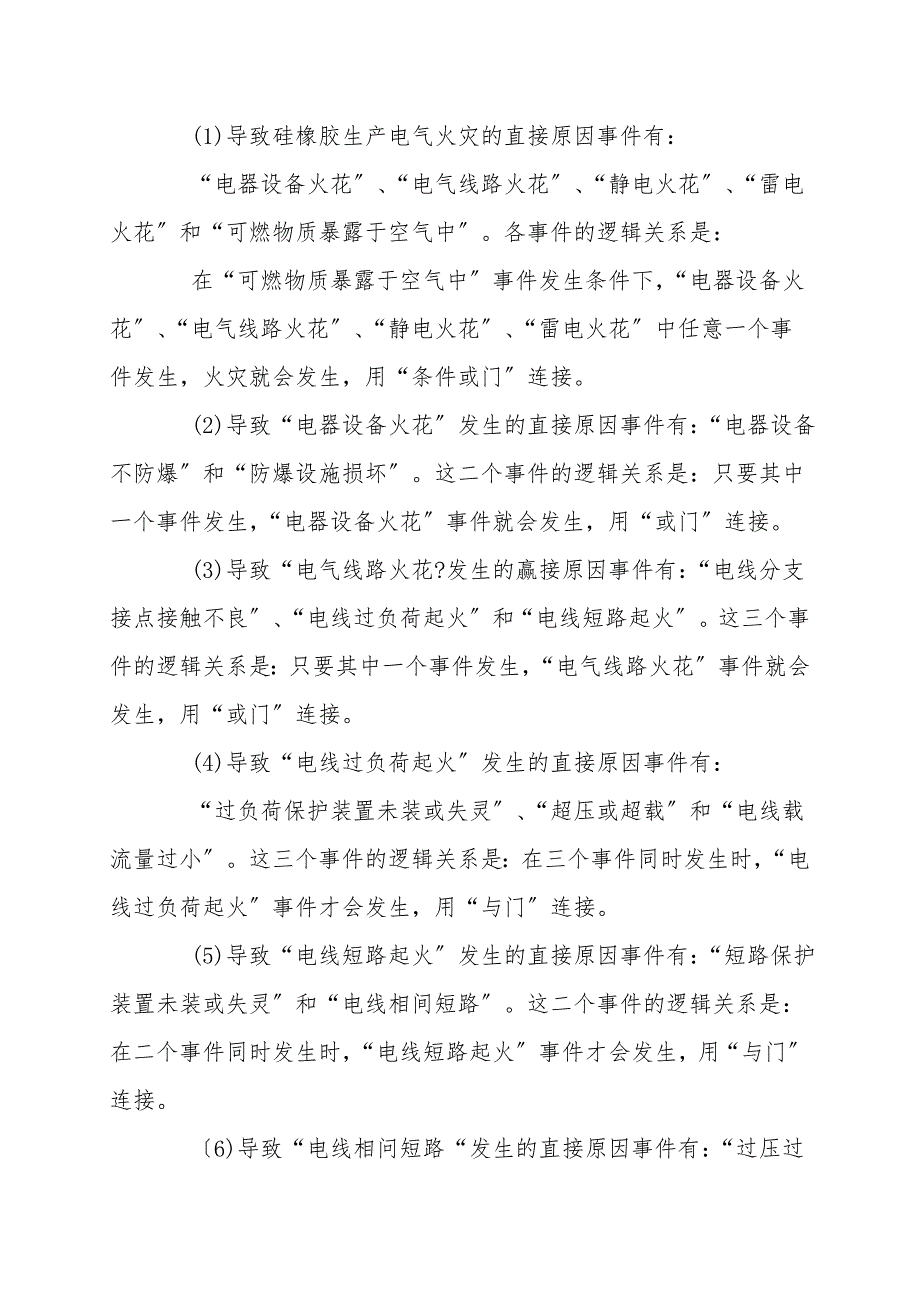 (1)导致硅橡胶生产电气火灾的直接原因事件有:
“电器设备火花〞、“电气线路火花〞、“静电火花〞、“雷电
火花〞和“可燃物质暴露于空气中〞。各事件的逻辑关系是:
在“可燃物质暴露于空气中〞事件发生条件下,“电器设备火
花〞、“电气线路火花〞、“静电火花〞、“雷电火花〞中任意一个事
件发生,火灾就会发生,用“条件或门〞连接。
(2)导致“电器设备火花〞发生的直接原因事件有:“电器设备
不防爆〞和“防爆设施损坏〞。这二个事件的逻辑关系是:只要其中
一个事件发生,“电器设备火花〞事件就会发生,用“或门〞连接。
(3)导致“电气线路火花?发生的赢接原因事件有:“电线分支
接点接触不良〞、“电线过负荷起火〞和“电线短路起火〞。这三个事
件的逻辑关系是:只要其中一个事件发生,“电气线路火花〞事件就会
发生,用“或门〞连接。
(4)导致“电线过负荷起火〞发生的直接原因事件有:
“过负荷保护装置未装或失灵〞、“超压或超载〞和“电线载
流量过小〞。这三个事件的逻辑关系是:在三个事件同时发生时,“电
线过负荷起火〞事件才会发生,用“与门〞连接。
(5)导致“电线短路起火〞发生的直接原因事件有:“短路保护
装置未装或失灵〞和“电线相间短路〞。这二个事件的逻辑关系是:
在二个事件同时发生时,“电线短路起火〞事件才会发生,用“与门〞
连接。
〔6)导致“电线相问短路“发生的直接原因事件有:“过压过